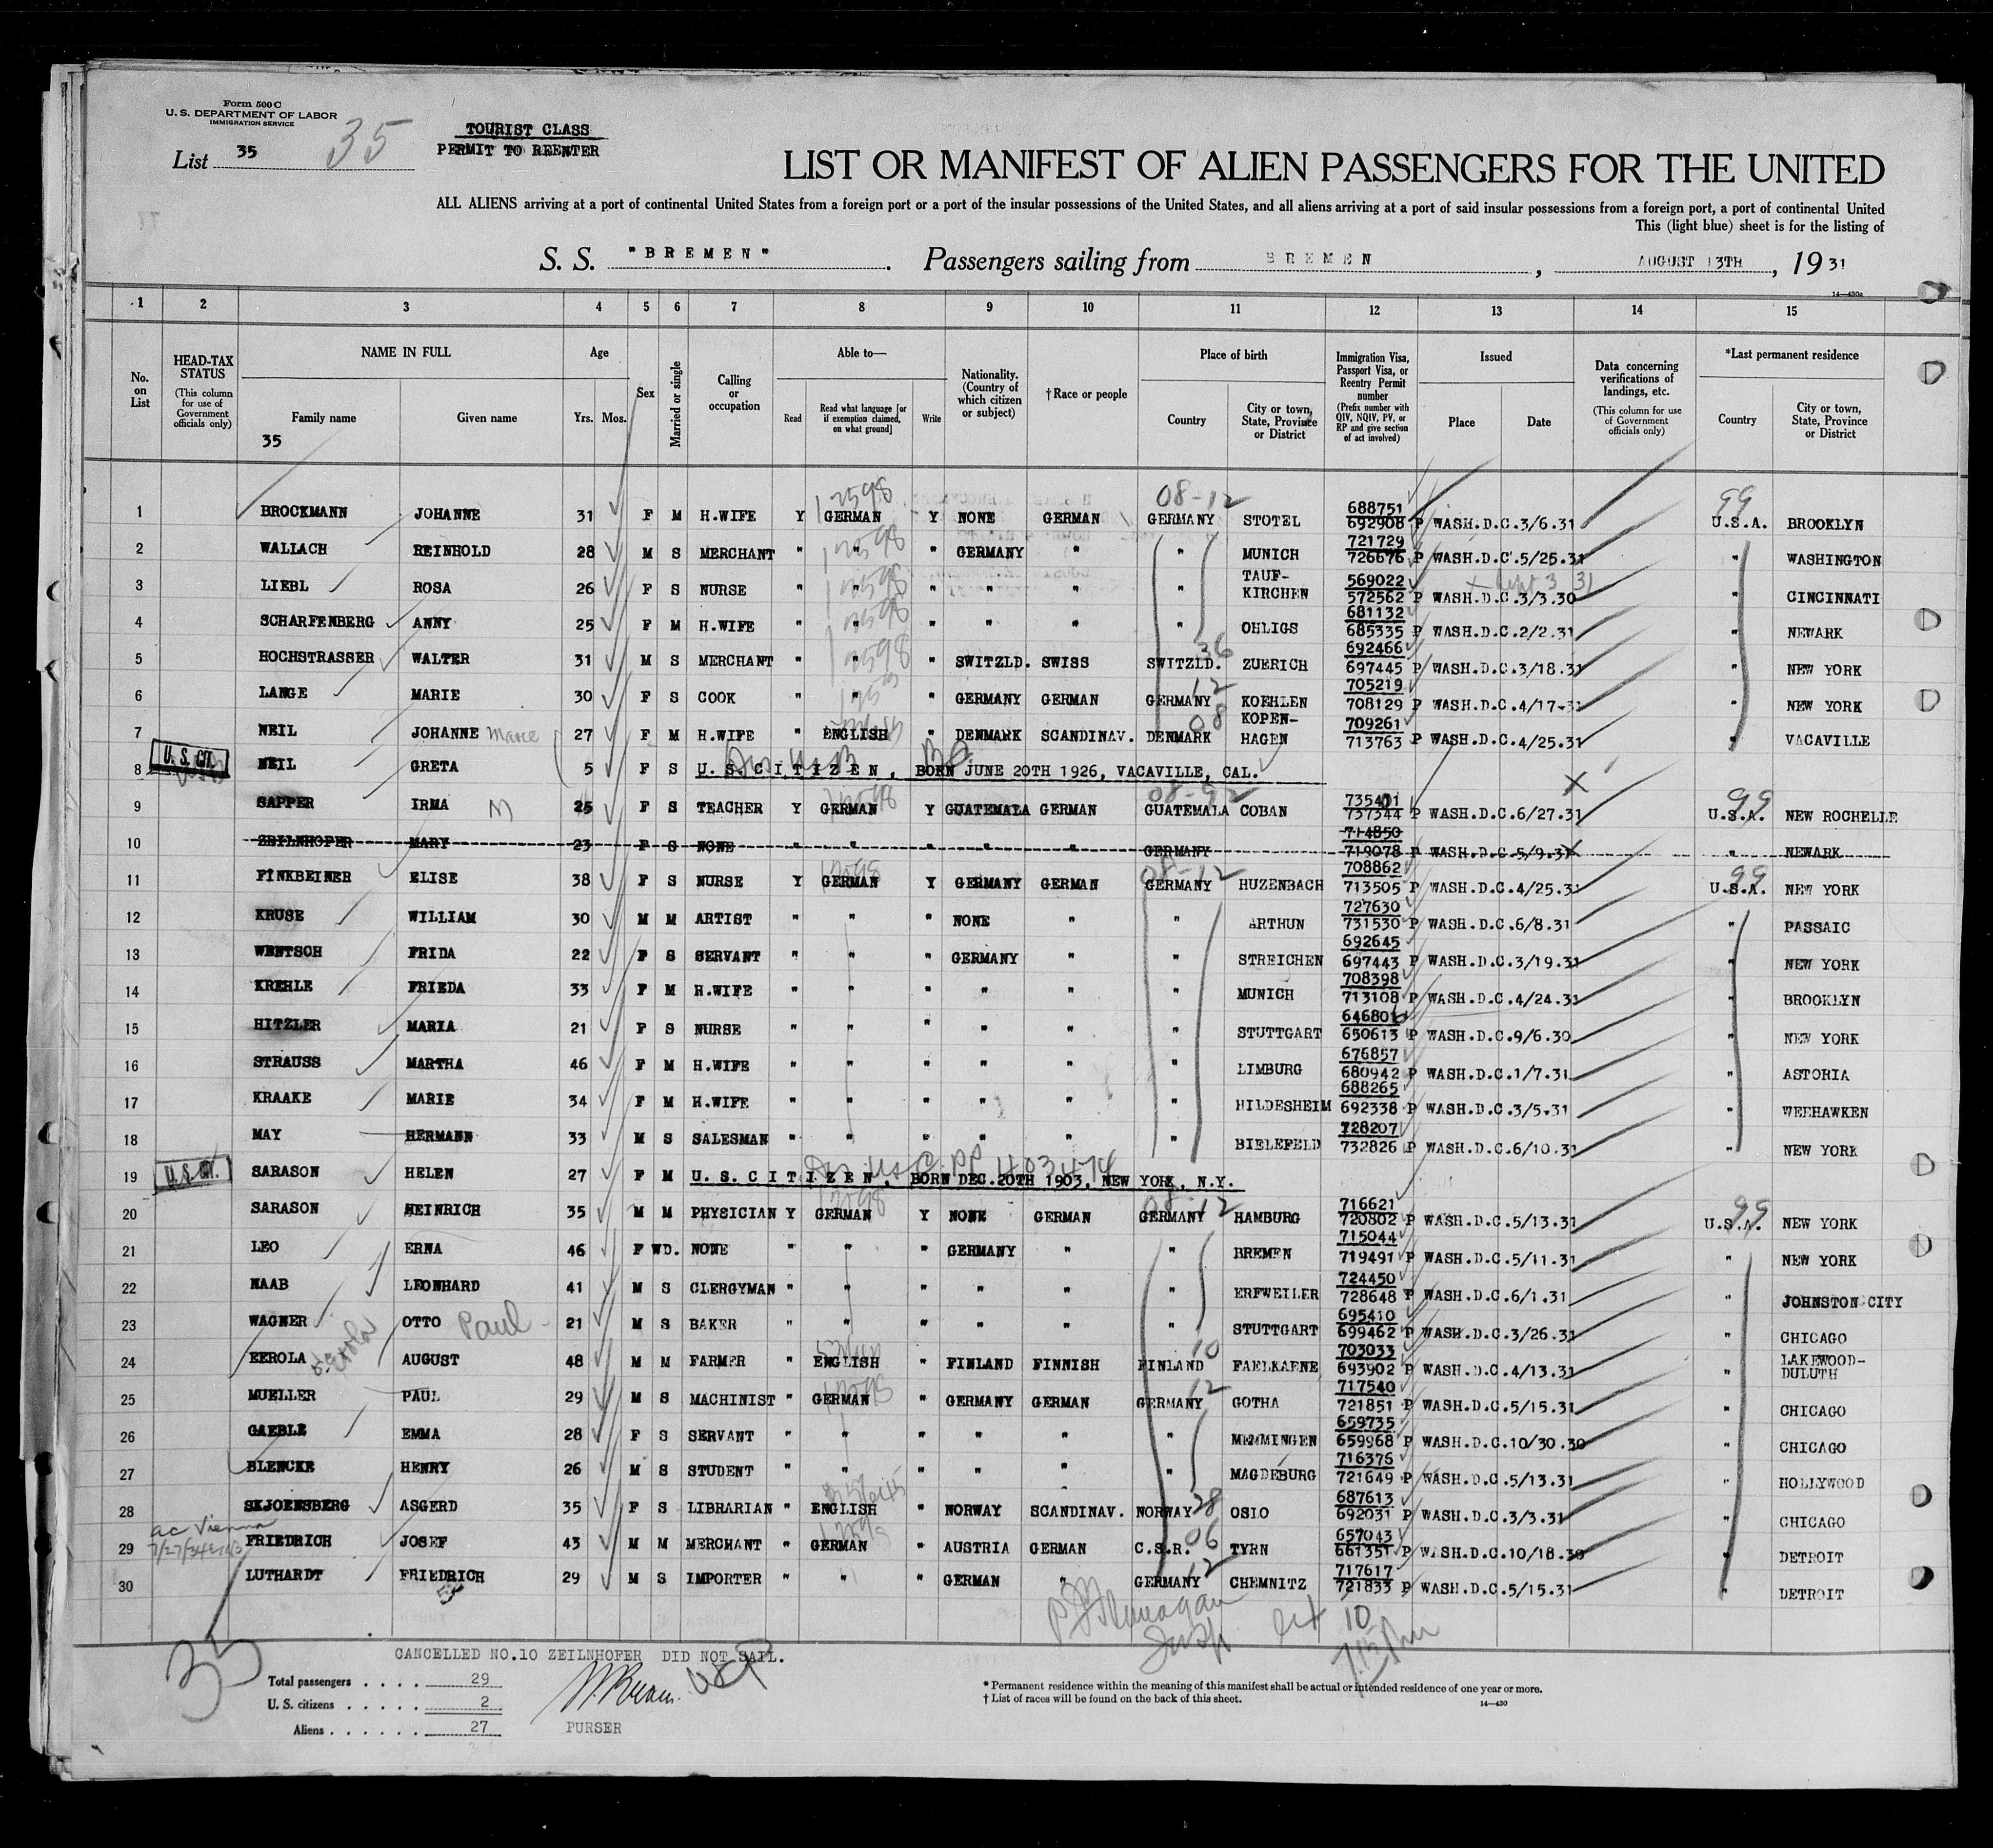 Form 500 C
U. S. DEPARTMENT OF LABOR
IMMIGRATION SERVICE
List 35 35
TOURIST CLASS
PERMIT TO REENTER
LIST OR MANIFEST OF ALIEN PASSENGERS FOR THE UNITED
ALL ALIENS arriving at a port of continental United States from a foreign port or a port of the insular possessions of the United States, and all aliens arriving at a port of said insular possessions from a foreign port, a port of continental United
This (light blue) sheet is for the listing of
S. S. "BREMEN" . Passengers sailing from BREMEN , AUGUST 13TH , 19 31
14—430c
1 2 3 4 5 6 7 8 9 10 11 12 13 14 15
No. on List
HEAD-TAX STATUS (This column for use of Government officials only)
NAME IN FULL
Family name Given name
35
Age
Yrs. Mos.
Sex
Married or single
Calling or occupation
Able to—
Read Read what language [or if exemption claimed, on what ground] Write
Nationality. (Country of which citizen or subject)
† Race or people
Place of birth
Country City or town, State, Province or District
Immigration Visa, Passport Visa, or Reentry Permit number (Prefix number with QIV, NQIV, PV, or RP and give section of act involved)
Issued
Place Date
Data concerning verifications of landings, etc. (This column for use of Government officials only)
*Last permanent residence
Country City or town, State, Province or District
12598 08-12 99
1 BROCKMANN JOHANNE 31 F M H.WIFE Y GERMAN Y NONE GERMAN GERMANY STOTEL 688751 692908 P WASH.D.C.3/6.31 U.S.A. BROOKLYN
2 WALLACH REINHOLD 28 M S MERCHANT " " " GERMANY " " MUNICH 721729 726676 P WASH.D.C.5/25.31 " WASHINGTON
3 LIEBL ROSA 26 F S NURSE " " " " " " TAUF-KIRCHEN 569022 572562 P WASH.D.C.3/3.30 " CINCINNATI
4 SCHARFENBERG ANNY 25 F M H.WIFE " " " " " " OHLIGS 681132 685335 P WASH.D.C.2/2.31 " NEWARK
5 HOCHSTRASSER WALTER 31 M S MERCHANT " " " SWITZLD. SWISS SWITZLD. 36 ZUERICH 692466 697445 P WASH.D.C.3/18.31 " NEW YORK
6 LANGE MARIE 30 F S COOK " " " GERMANY GERMAN GERMANY 12 KOEHLEN 705219 708129 P WASH.D.C.4/17.31 " NEW YORK
7 NEIL JOHANNE Marie 27 F M H.WIFE " ENGLISH " DENMARK SCANDINAV. DENMARK 08 KOPEN-HAGEN 709261 713763 P WASH.D.C.4/25.31 " VACAVILLE
U. S. CIT.
8 NEIL GRETA 5 F S U. S. CITIZEN, BORN JUNE 20TH 1926, VACAVILLE, CAL.
9 SAPPER IRMA M 25 F S TEACHER Y GERMAN Y GUATEMALA GERMAN GUATEMALA COBAN 735401 737344 P WASH.D.C.6/27.31 U.S.A. 99 NEW ROCHELLE
10 ZEILNHOFER MARY 23 F S NONE " " " " " GERMANY 714850 719078 P WASH.D.C.5/9.31 " NEWARK
11 FINKBEINER ELISE 38 F S NURSE Y GERMAN Y GERMANY GERMAN GERMANY HUZENBACH 708862 713505 P WASH.D.C.4/25.31 U.S.A. 99 NEW YORK
12 KRUSE WILLIAM 30 M M ARTIST " " " NONE " " ARTHUN 727630 731530 P WASH.D.C.6/8.31 " PASSAIC
13 WENTSCH FRIDA 22 F S SERVANT " " " GERMANY " " STREICHEN 692645 697443 P WASH.D.C.3/19.31 " NEW YORK
14 KREHLE FRIEDA 33 F M H.WIFE " " " " " " MUNICH 708398 713108 P WASH.D.C.4/24.31 " BROOKLYN
15 HITZLER MARIA 21 F S NURSE " " " " " " STUTTGART 646801 650613 P WASH.D.C.9/6.30 " NEW YORK
16 STRAUSS MARTHA 46 F M H.WIFE " " " " " " LIMBURG 676857 680942 P WASH.D.C.1/7.31 " ASTORIA
17 KRAAKE MARIE 34 F M H.WIFE " " " " " " HILDESHEIM 688265 692338 P WASH.D.C.3/5.31 " WEEHAWKEN
18 MAY HERMANN 33 M S SALESMAN " " " " " " BIELEFELD 728207 732826 P WASH.D.C.6/10.31 " NEW YORK
U. S. CIT.
19 SARASON HELEN 27 F M U. S. CITIZEN, BORN DEC.20TH 1903, NEW YORK, N.Y. PP 403474
20 SARASON HEINRICH 35 M M PHYSICIAN Y GERMAN Y NONE GERMAN GERMANY HAMBURG 716621 720802 P WASH.D.C.5/13.31 U.S.A. 99 NEW YORK
21 LEO ERNA 46 F WD. NONE " " " GERMANY " " BREMEN 715044 719491 P WASH.D.C.5/11.31 " NEW YORK
22 NAAB LEONHARD 41 M S CLERGYMAN " " " " " " ERFWEILER 724450 728648 P WASH.D.C.6/1.31 " JOHNSTON CITY
23 WAGNER OTTO Paul 21 M S BAKER " " " " " " STUTTGART 695410 699462 P WASH.D.C.3/26.31 " CHICAGO
24 EEROLA AUGUST 48 M M FARMER " ENGLISH " FINLAND FINNISH FINLAND 10 FAELKAENE 703033 693902 P WASH.D.C.4/13.31 " LAKEWOOD-DULUTH
25 MUELLER PAUL 29 M S MACHINIST " GERMAN " GERMANY GERMAN GERMANY 12 GOTHA 717540 721851 P WASH.D.C.5/15.31 " CHICAGO
26 GAEBLE EMMA 28 F S SERVANT " " " " " " MEMMINGEN 659735 659968 P WASH.D.C.10/30.30 " CHICAGO
27 BLENCKE HENRY 26 M S STUDENT " " " " " " MAGDEBURG 716376 721649 P WASH.D.C.5/13.31 " HOLLYWOOD
28 SKJOENSBERG ASGERD 35 F S LIBRARIAN " ENGLISH " NORWAY SCANDINAV. NORWAY 28 OSLO 687613 692031 P WASH.D.C.3/3.31 " CHICAGO
ac Vienna
29 FRIEDRICH JOSEF 43 M M MERCHANT " GERMAN " AUSTRIA GERMAN C.S.R. 06 TYRN 657043 661351 P WASH.D.C.10/18.30 " DETROIT
30 LUTHARDT FRIEDRICH 29 M S IMPORTER " " " GERMAN " GERMANY 12 CHEMNITZ 717617 721833 P WASH.D.C.5/15.31 " DETROIT
35
CANCELLED NO.10 ZEILNHOFER DID NOT SAIL.
Total passengers . . . . 29
U. S. citizens . . . . . 2
Aliens . . . . . . 27
PURSER
* Permanent residence within the meaning of this manifest shall be actual or intended residence of one year or more.
† List of races will be found on the back of this sheet.
14—430